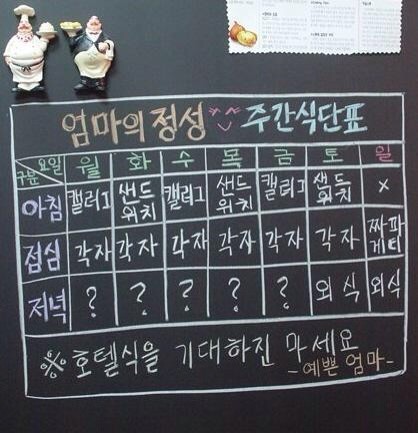 엄마의 정성 ^^ 주간식단표
구분 요일 월 화 수 목 금 토 일
아침 캘러그 샌드위치 캘러그 샌드위치 캘러그 샌드위치 x
점심 각자 각자 각자 각자 각자 각자 짜파게티
저녁 ? ? ? ? ? 외식 외식
※ 호텔식을 기대하진 마세요
-예쁜 엄마-